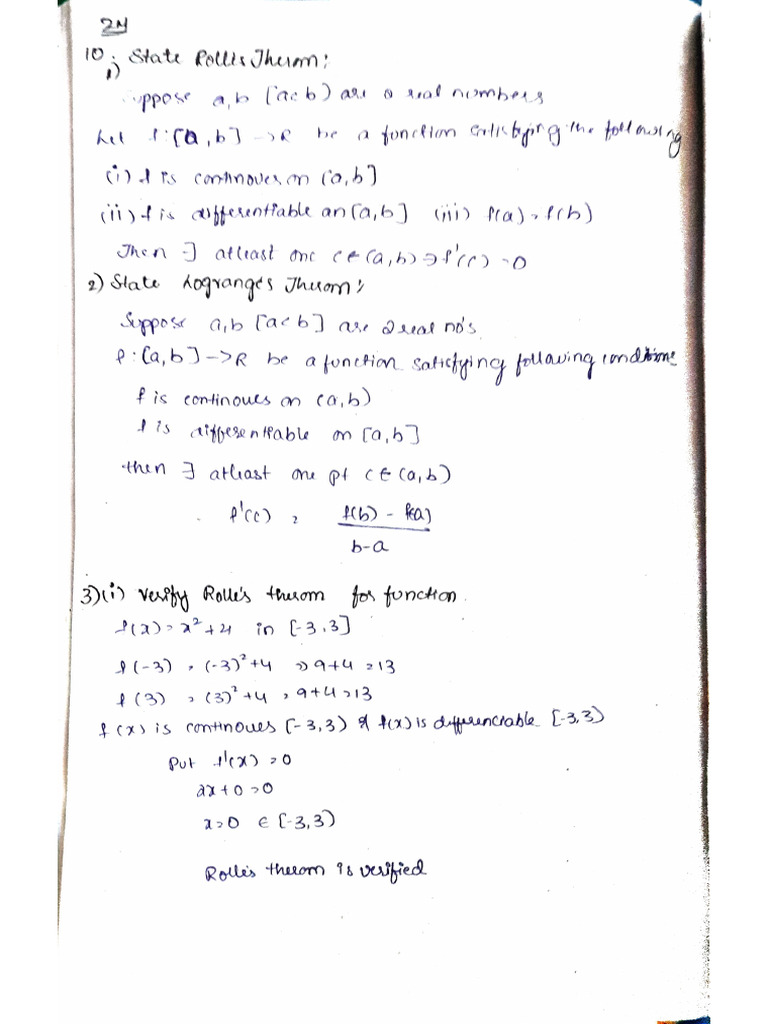 2M
10.
1) State Rolle's Therom:
Suppose a,b [a<b) are a real numbers
Let f:[a,b] → R be a function satisfying the following
(i) f is continoues on [a,b]
(ii) f is differentiable an [a,b] (iii) f(a) = f(b)
Then ∃ atleast one c ∈ (a,b) ∋ f'(c) = 0
2) State Logranges Therom:
Suppose a,b [a<b] are 2 real no's
f:[a,b] → R be a function satisfying following conditions
f is continoues on (a,b)
f is differentiable on [a,b]
then ∃ atleast one pt c ∈ (a,b)
f'(c) = f(b) - f(a)
b-a
3)(i) Verify Rolle's therom for function
f(x) = x²+4 in [-3,3]
f(-3) = (-3)²+4 ⇒ 9+4 = 13
f(3) = (3)²+4 = 9+4 = 13
f(x) is continoues [-3,3) & f(x) is differenctable [-3,3)
Put f'(x) = 0
2x+0 = 0
x=0 ∈ [-3,3)
Rolle's therom is verified